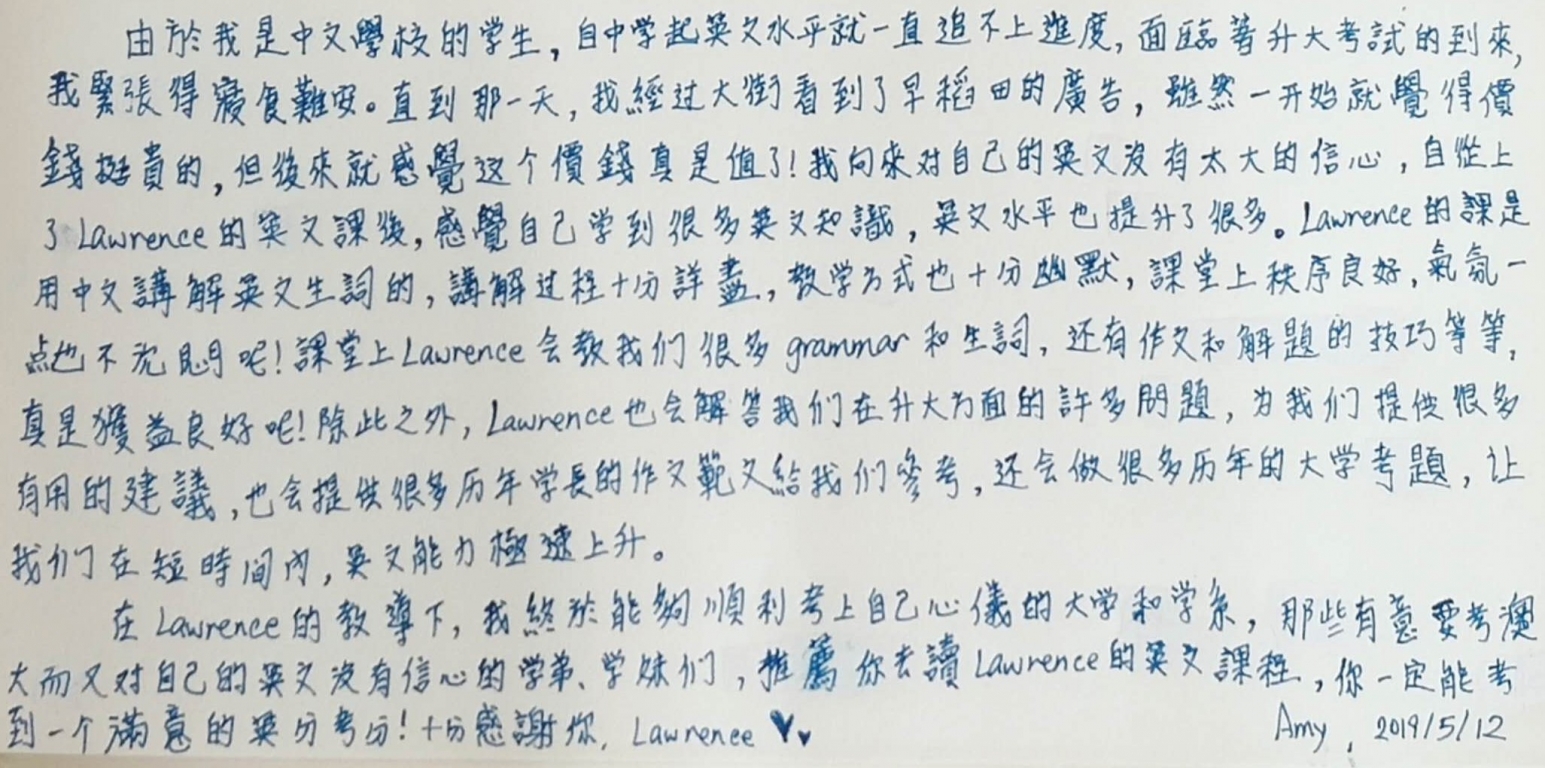 由於我是中文學校的学生，自中学起英文水平就一直追不上進度，面臨著升大考試的到來，
我緊張得寢食難安。直到那一天，我經过大街看到了早稻田的廣告，雖然一开始就覺得價
錢挺貴的，但後來就感覺这个價錢真是值了！我向來对自己的英文沒有太大的信心，自從上
了Lawrence的英文課後，感覺自己学到很多英文知識，英文水平也提升了很多。Lawrence的課是
用中文講解英文生詞的，講解过程十分詳盡，教学方式也十分幽默，課堂上秩序良好，氣氛一
点也不沈悶呢！課堂上Lawrence会教我们很多grammar和生詞，还有作文和解題的技巧等等，
真是獲益良好呢！除此之外，Lawrence也会解答我们在升大方面的許多問題，为我们提供很多
有用的建議，也会提供很多历年学長的作文範文給我们參考，还会做很多历年的大学考題，让
我们在短時間內，英文能力極速上升。
在Lawrence的教導下，我終於能夠順利考上自己心儀的大学和学系，那些有意要考澳
大而又对自己的英文沒有信心的学弟、学妹们，推薦你去讀Lawrence的英文課程，你一定能考
到一个滿意的英文考分！十分感謝你，Lawrence ♥♥
Amy，2019/5/12